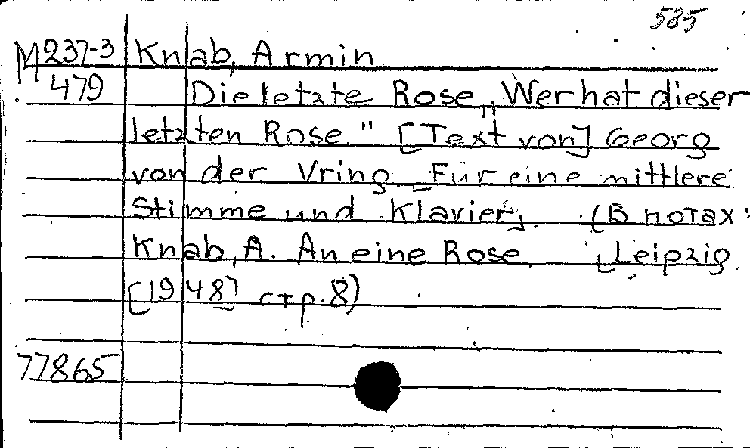 585
М237-3 Knab, Armin
479 Die letzte Rose „Wer hat dieser
letzten Rose." [Text von] Georg
von der Vring [Für eine mittlere
Stimme und Klavier]. (В нотах:
Knab, A. An eine Rose. [Leipzig.
[1948] стр. 8)
77865